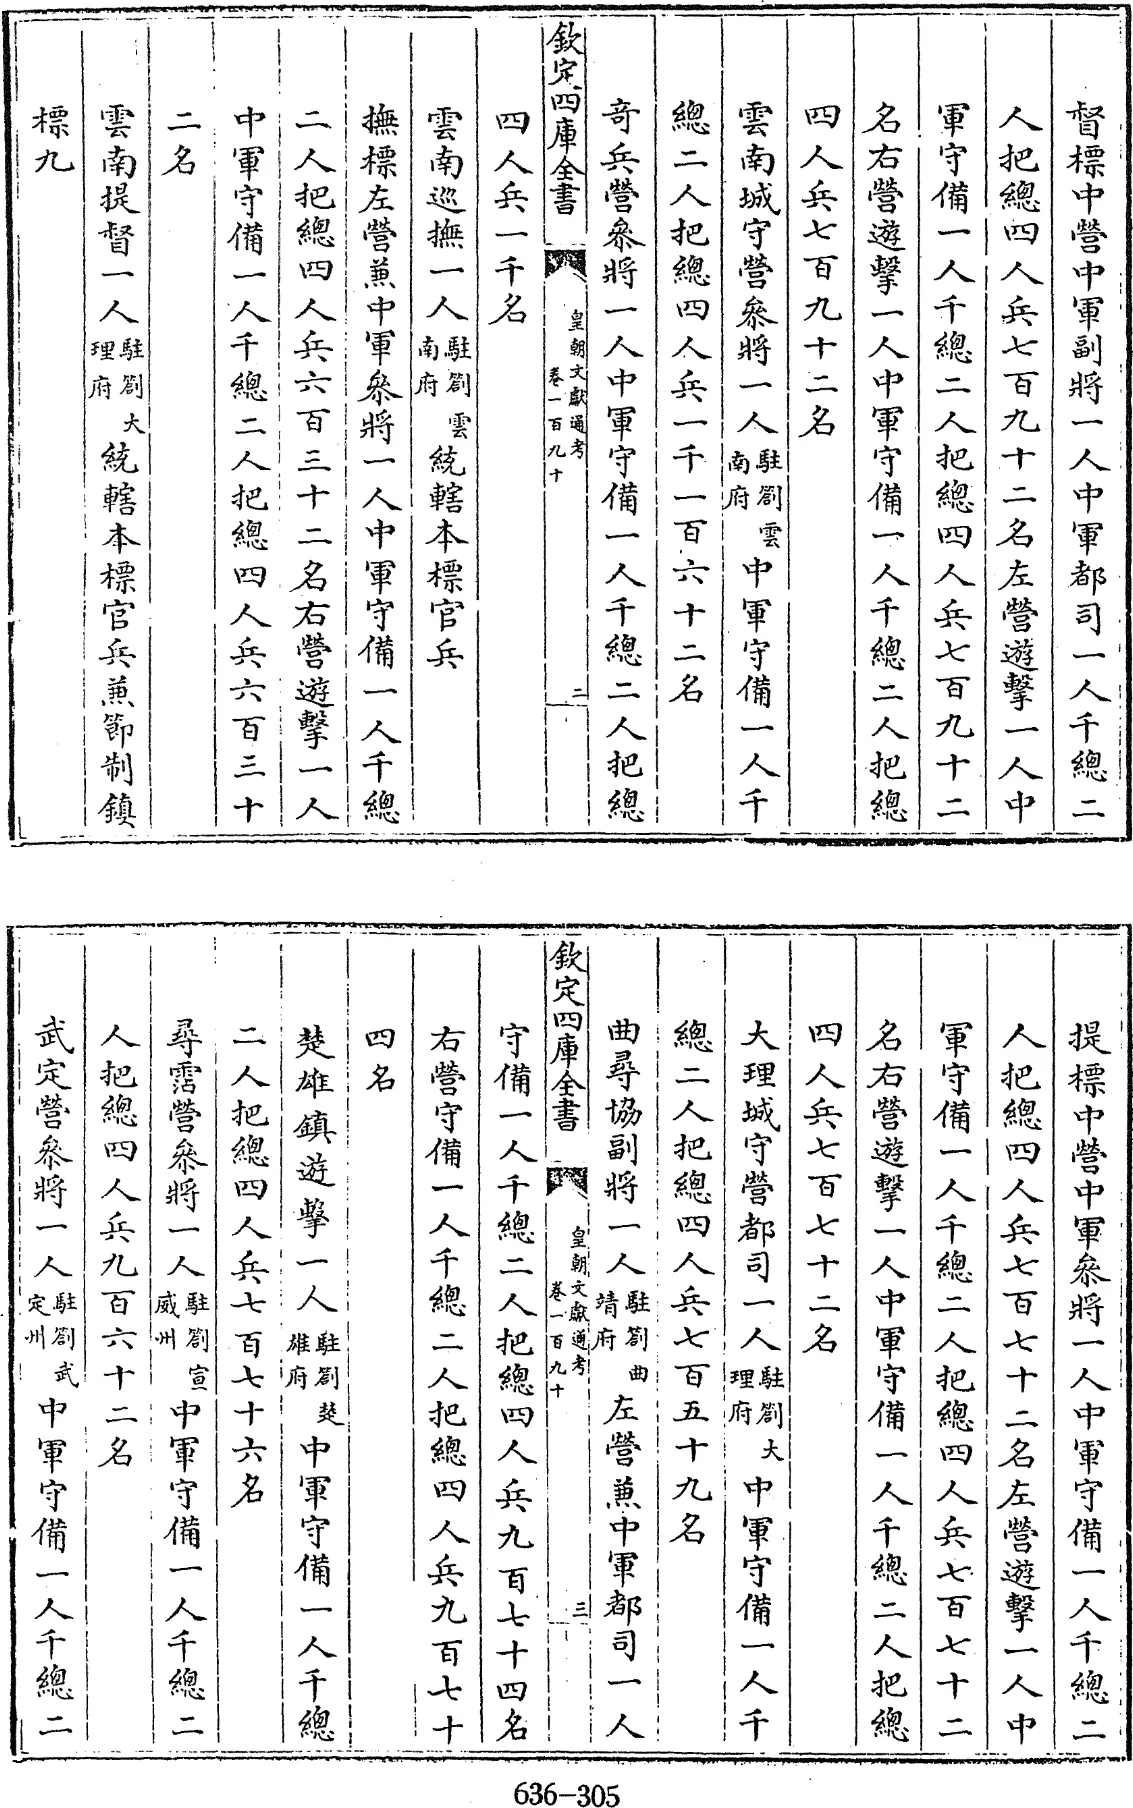 督標中營中軍副將一人中軍都司一人千總二
人把總四人兵七百九十二名左營遊擊一人中
軍守備一人千總二人把總四人兵七百九十二
名右營遊擊一人中軍守備一人千總二人把總
四人兵七百九十二名
雲南城守營叅將一人駐劄雲南府中軍守備一人千
總二人把總四人兵一千一百六十二名
奇兵營叅將一人中軍守備一人千總二人把總
欽定四庫全書
皇朝文獻通考
卷一百九十
二
四人兵一千名
雲南巡撫一人駐劄雲南府統轄本標官兵
撫標左營兼中軍叅將一人中軍守備一人千總
二人把總四人兵六百三十二名右營遊擊一人
中軍守備一人千總二人把總四人兵六百三十
二名
雲南提督一人駐劄大理府統轄本標官兵兼節制鎮
標九
提標中營中軍叅將一人中軍守備一人千總二
人把總四人兵七百七十二名左營遊擊一人中
軍守備一人千總二人把總四人兵七百七十二
名右營遊擊一人中軍守備一人千總二人把總
四人兵七百七十二名
大理城守營都司一人駐劄大理府中軍守備一人千
總二人把總四人兵七百五十九名
曲尋協副將一人駐劄曲靖府左營兼中軍都司一人
欽定四庫全書
皇朝文獻通考
卷一百九十
三
守備一人千總二人把總四人兵九百七十四名
右營守備一人千總二人把總四人兵九百七十
四名
楚雄鎮遊擊一人駐劄楚雄府中軍守備一人千總
二人把總四人兵七百七十六名
尋霑營叅將一人駐劄宣威州中軍守備一人千總二
人把總四人兵九百六十二名
武定營叅將一人駐劄武定州中軍守備一人千總二
636-305